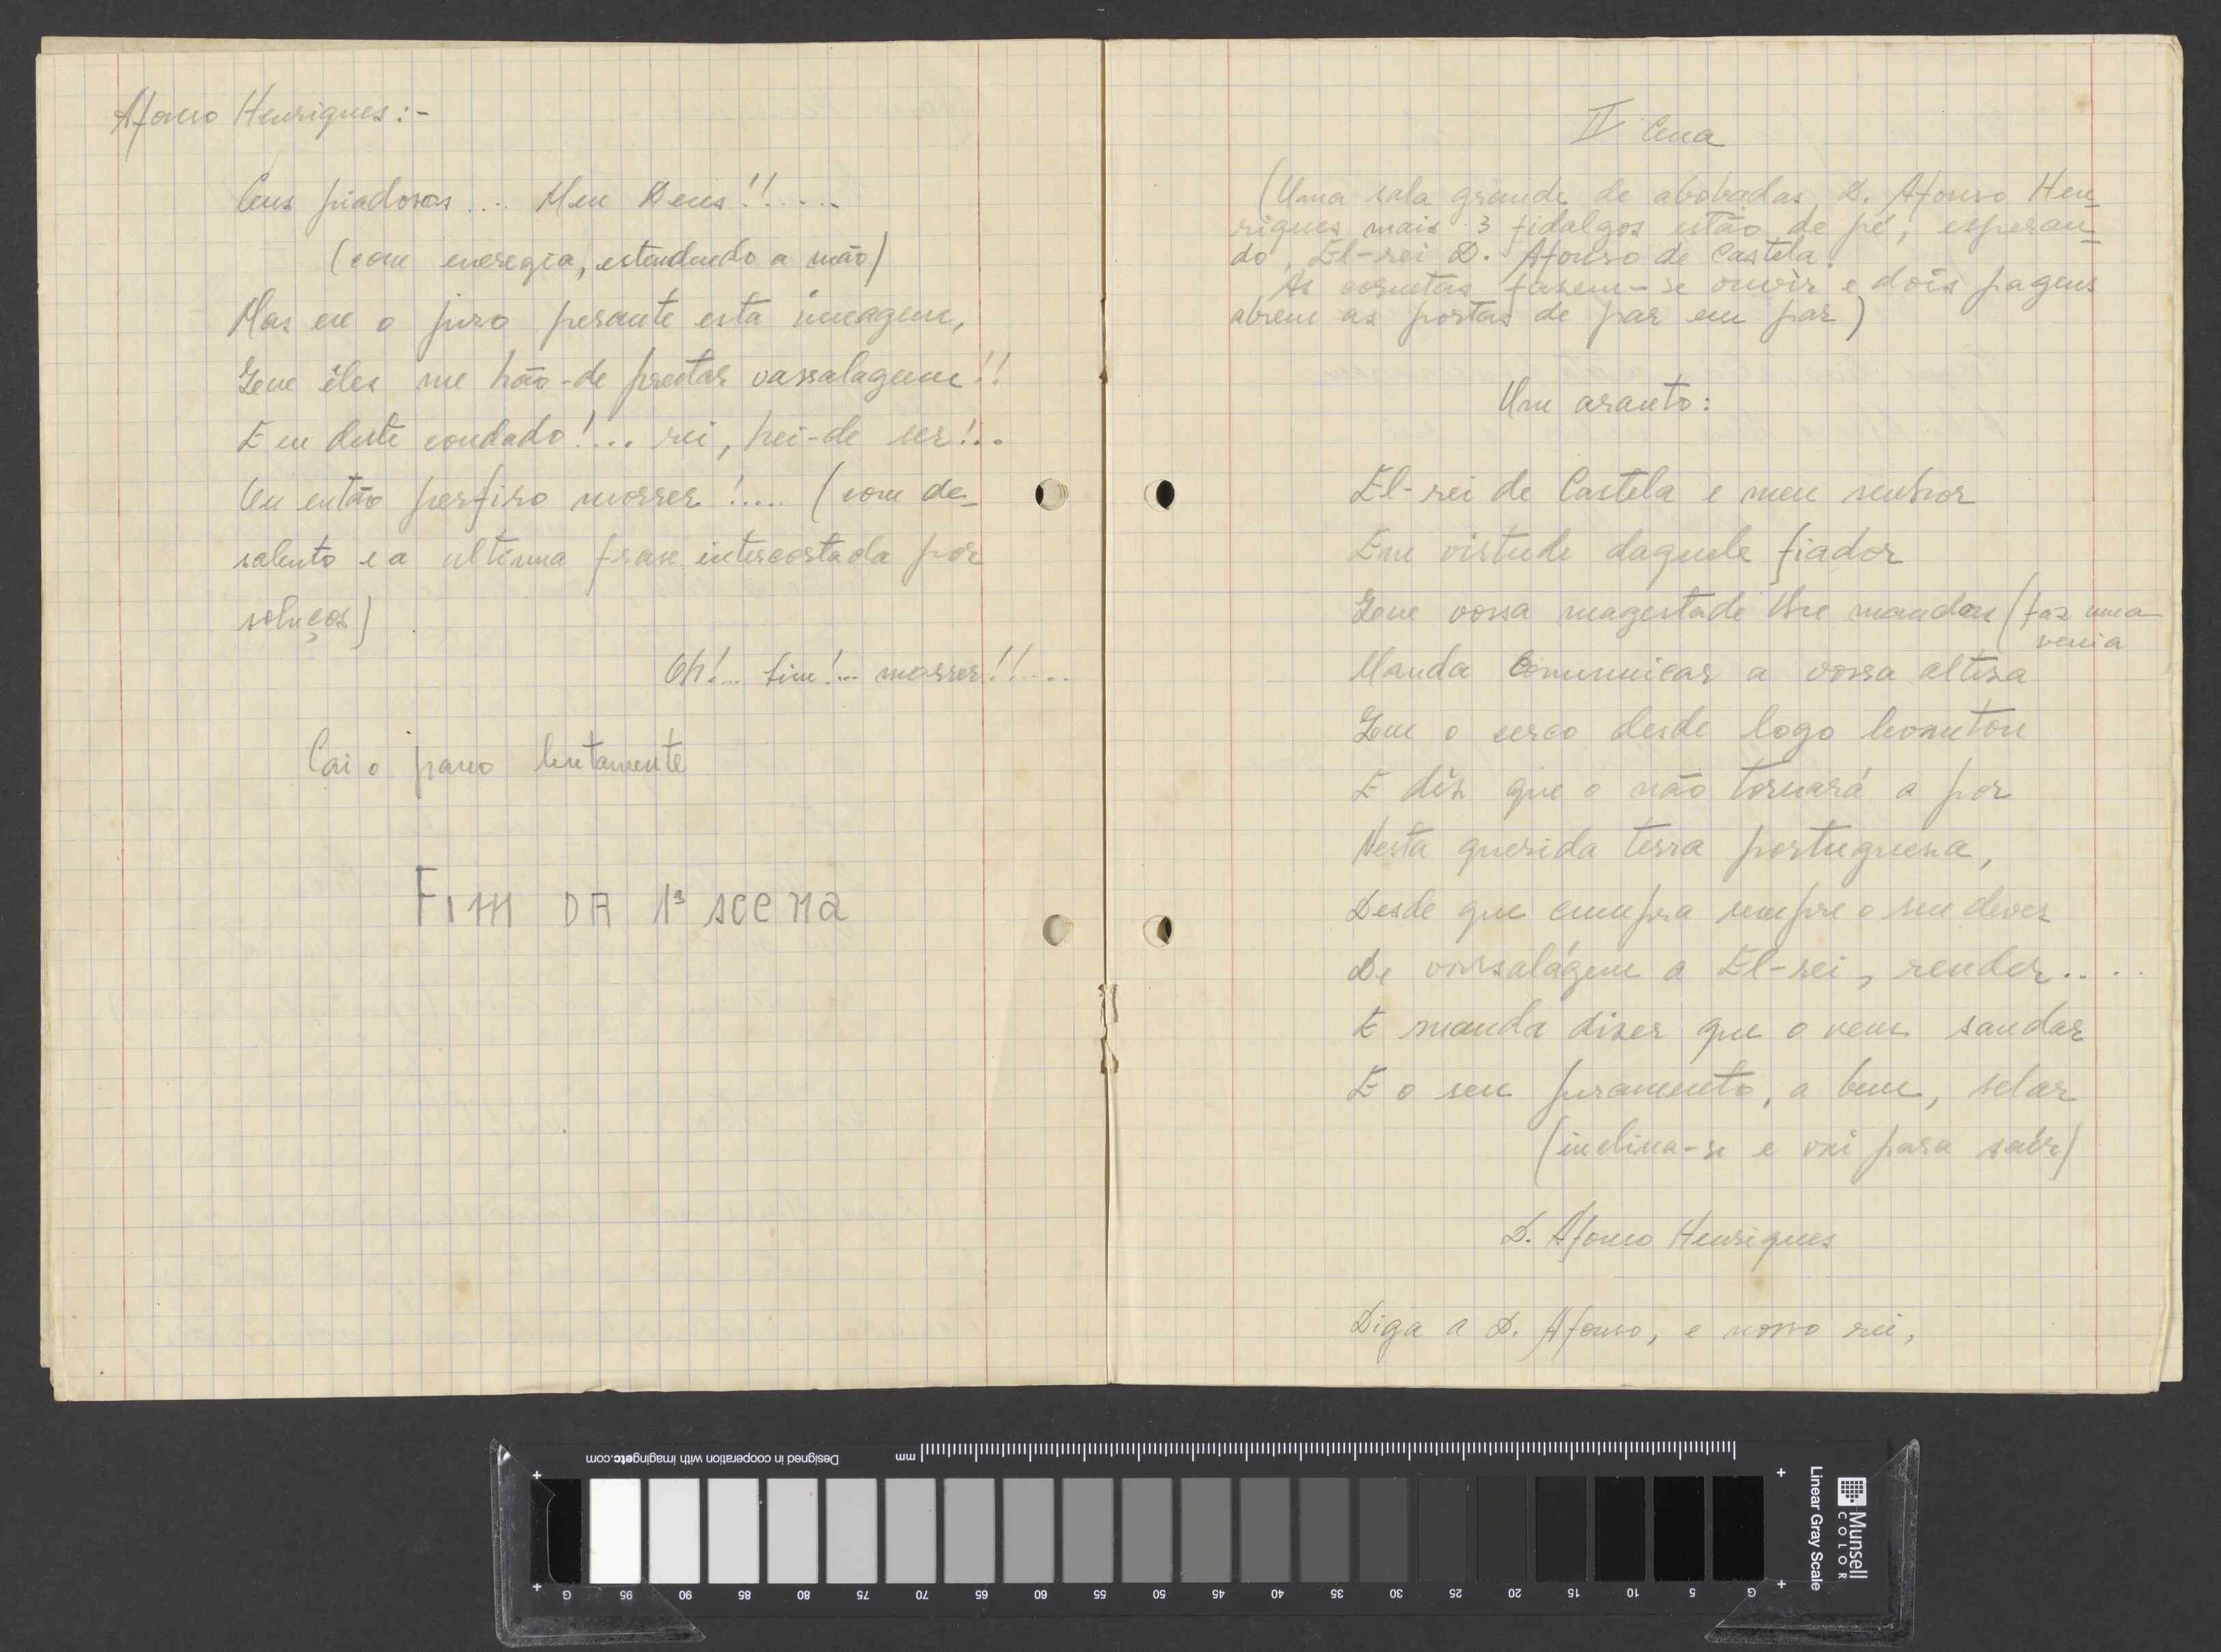 Afonso Henriques:-
Ceus piadosos.... Meu Deus!!.....
(com energia, estendendo a mão)
Mas eu o juro perante esta imagem,
Que êles me hão-de prestar vassalagem!!
E eu deste condado!... rei, hei-de ser!..
Ou então perfiro morrer!.... (com de-
salento e a ultima frase intercortada por
soluços)
Oh!... sim!... morrer!!....
Cai o pano lentamente
Fim DA 1ª scena
II Cena
(Uma sala grande de abobadas, D. Afonso Hen-
riques mais 3 fidalgos estão de pé, esperan-
do, El-rei D. Afonso de Castela.
As cornetas fazem-se ouvir e dois pagens
abrem as portas de par em par)
Um arauto:
El-rei de Castela e meu senhor
Em virtude daquele fiador
Que vossa magestade lhe mandou (faz uma
venia
Manda comunicar a vossa alteza
Que o cerco desde logo levantou
E diz que o não tornará a por
Nesta querida terra portuguesa,
Desde que cumpra sempre o seu dever
De vassalágem a El-rei, render....
E manda dizer que o vem saudar
E o seu juramento, a bem, selar
(inclina-se e vai para saír)
D. Afonso Henriques
Diga a D. Afonso, e nosso rei,
Designed in cooperation with imagingetc.com
mm
Munsell
COLOR
Linear Gray Scale
G 95 90 85 80 75 70 65 60 55 50 45 40 35 30 25 20 15 10 5 G